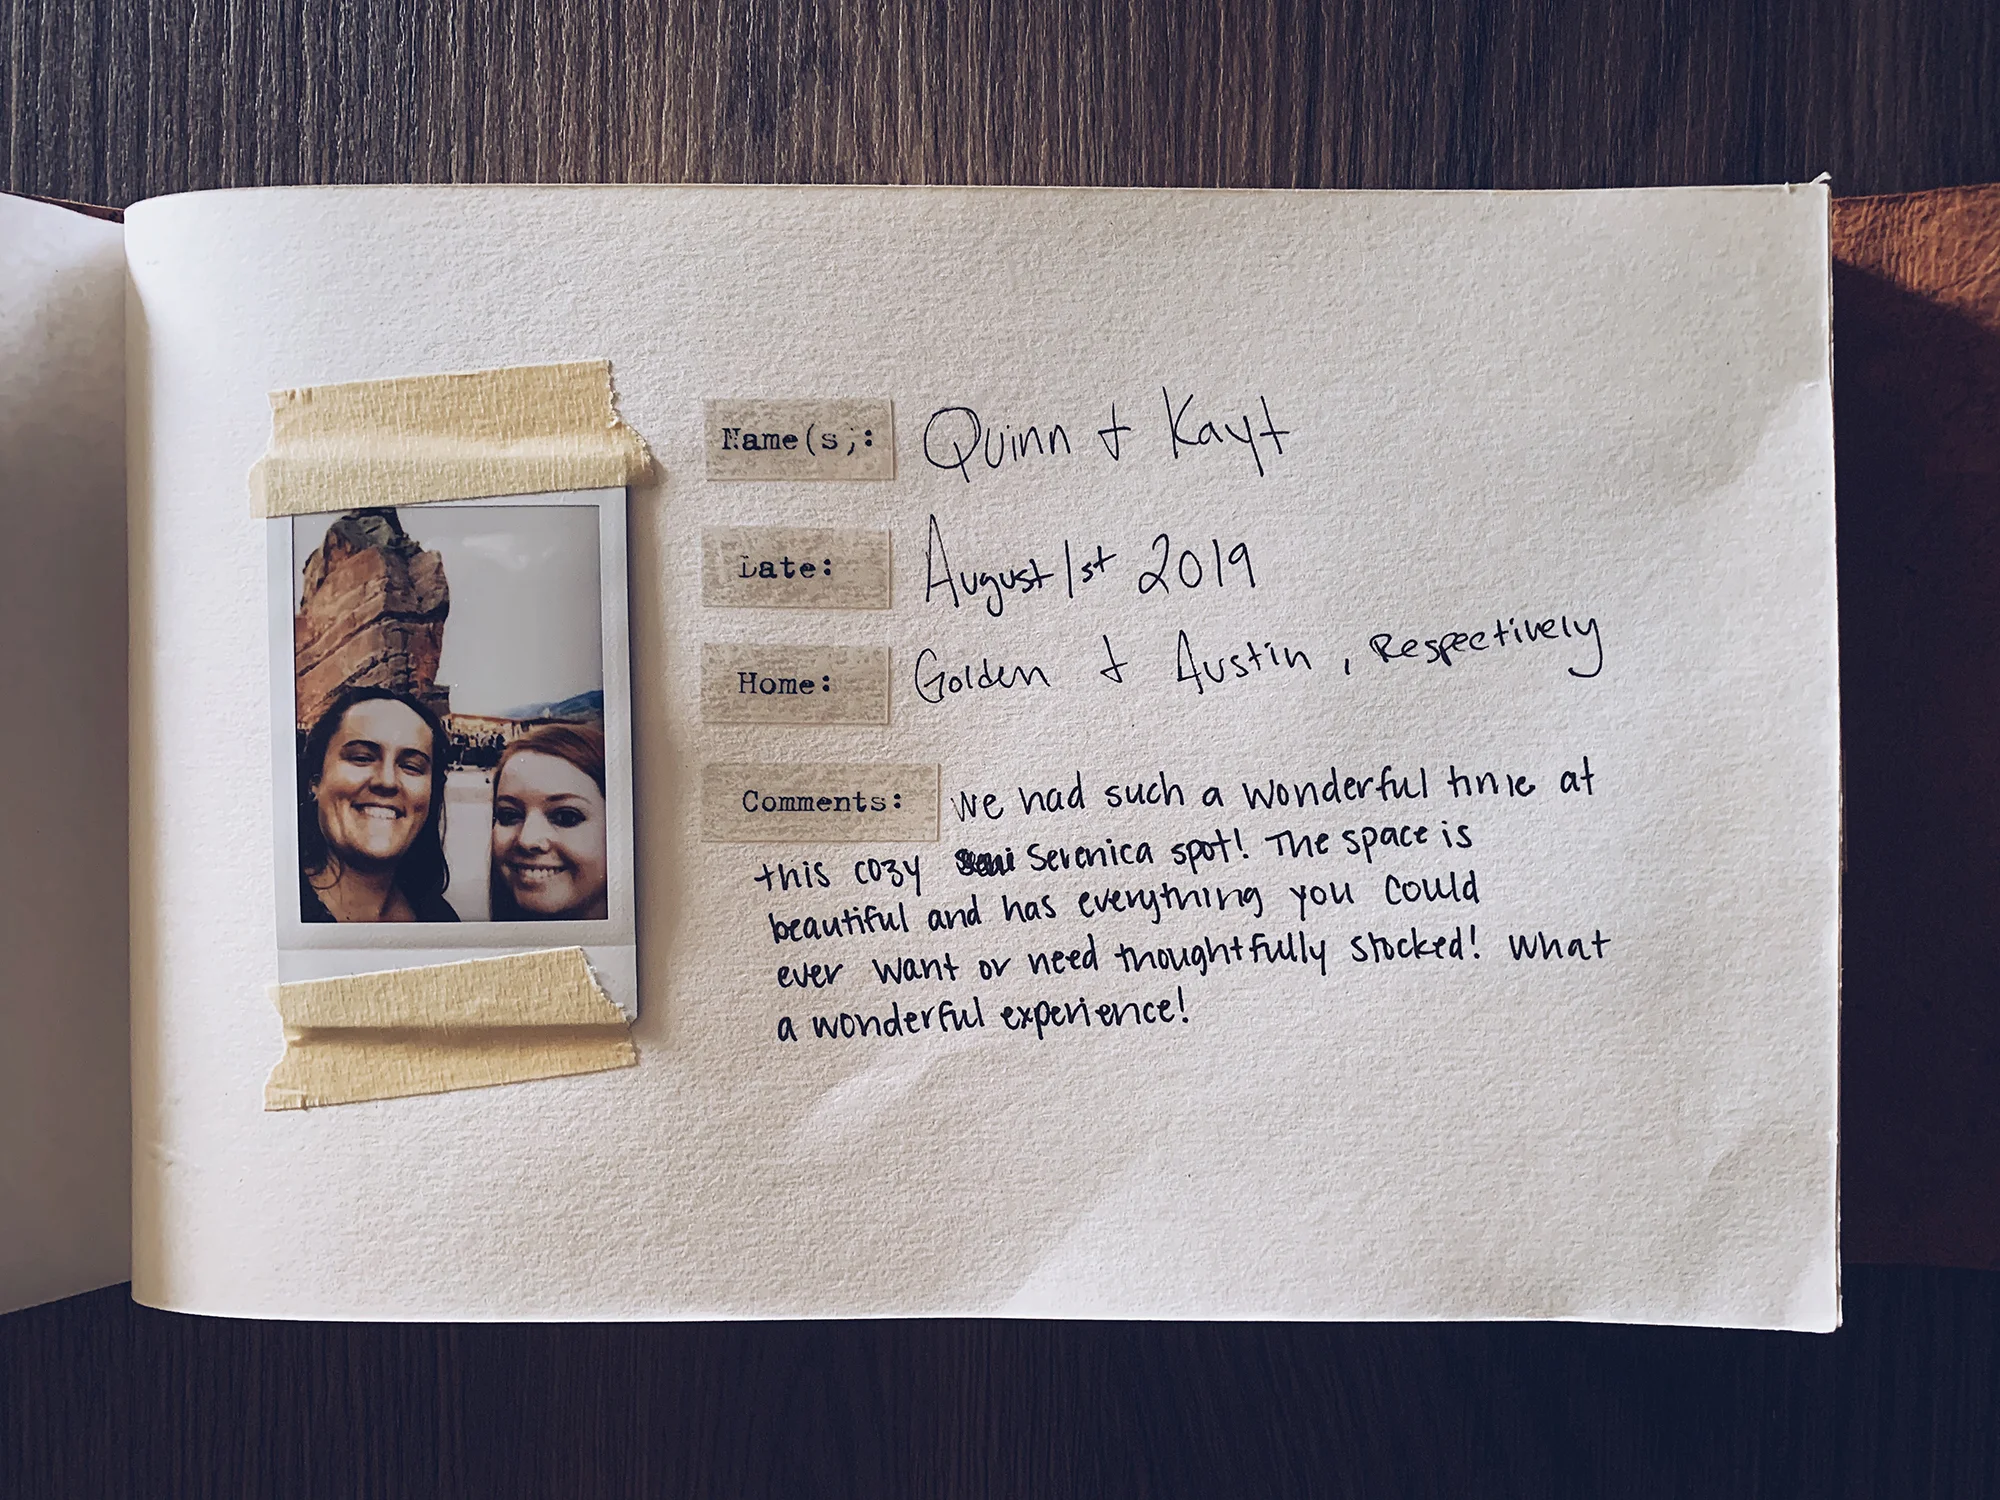 Name(s): Quinn + Kayt
Date: August 1st 2019
Home: Golden + Austin, Respectively
Comments: We had such a wonderful time at
this cozy Serenica spot! The space is
beautiful and has everything you could
ever want or need thoughtfully stocked! What
a wonderful experience!